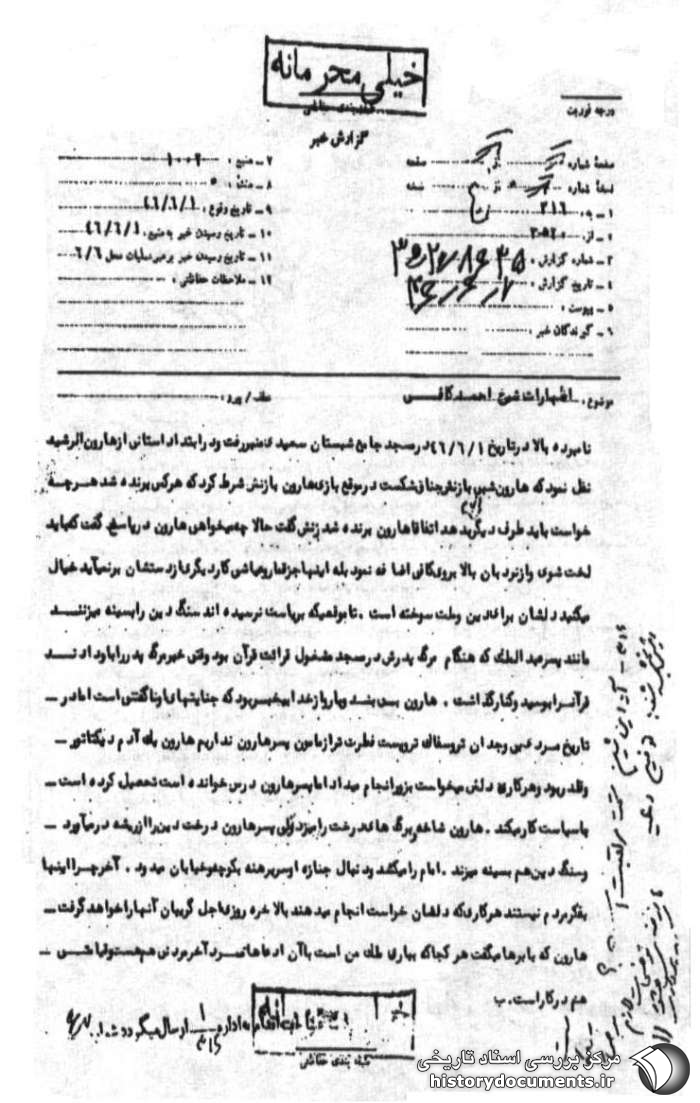 خیلی محرمانه
طبقه‌بندی حفاظتی
درجه فوریت
گزارش خبر
صفحه شماره
صفحه
نسخه شماره
نسخه
۱ـ به : ۳۱۶
۲ـ از :
۳ـ شماره گزارش :
۴ـ تاریخ گزارش :
۵ـ پیوست :
۶ـ گیرندگان خبر :
۷ـ منبع : ۱۰۰۲
۸ـ منشأ :
۹ـ تاریخ وقوع : ۴۶/۶/۱
۱۰ـ تاریخ رسیدن خبر به منبع : ۴۶/۶/۱
۱۱ـ تاریخ رسیدن خبر برهبر عملیات محل ۶/۶
۱۲ـ ملاحظات حفاظتی :
موضوع : اظهارات شیخ احمد کافی
عطف / پیرو :
نامبرده بالا در تاریخ ۴۶/۶/۱ در مسجد جامع شبستان سعیدی منبر رفت و در ابتدا داستانی از هارون الرشید
نقل نمود که هارون شبی بازنش جناق شکست در موقع بازی هارون بازنش شرط کرد که هر کس برنده شد هر چه
خواست باید طرف دیگر بدهد اتفاقا هارون برنده شد زنش گفت حالا چه میخواهی هارون در پاسخ گفت که باید
لخت شوی و از نردبان بالا بروی کافی اضافه نمود بله اینها جز قمار و عیاشی کار دیگری از دستشان برنمیآید خیال
میکنید دلشان برای دین و ملت سوخته است . تا موقعیکه بریاست نرسیده اند سنگ دین را بسینه میزنند
مانند پسر عبدالملک که هنگام مرگ پدرش در مسجد مشغول قرائت قرآن بود وقتی خبر مرگ پدر را باو دادند
قرآن را بوسید و کنار گذاشت . هارون بی بند و بار و از خدا بیخبر بود که جنایتهای او ناگفتنی است اما در ـ
تاریخ مرد بی وجدان تر و سفاک تر و پست فطرت تر از مامون پسر هارون نداریم هارون یک آدم دیکتاتور ـ
و قلدر بود و هر کاری دلش میخواست بزور انجام میداد اما پسر هارون درس خوانده است تحصیل کرده است ـ
با سیاست کار میکند . هارون شاخه و برگ های درخت را میزد ولی پسر هارون درخت دین را از ریشه در میآورد ـ
و سنگ دین هم بسینه میزند . امام را میکشد و دنبال جنازه او سر برهنه بکوچه و خیابان میدود . آخر چرا اینها
بفکر مردم نیستند هر کاری که دلشان خواست انجام میدهند بالاخره روزی اجل گریبان آنها را خواهد گرفت ـ
هارون که بابرها میگفت هر کجا که بباری ملک من است با آن ادعاها مرد آخر مردنی هم هست و قیامتی ـ
هم در کار است . ب
به اداره ارسال میگردد
طبقه بندی حفاظتی
مرکز بررسی اسناد تاریخی
historydocuments.ir